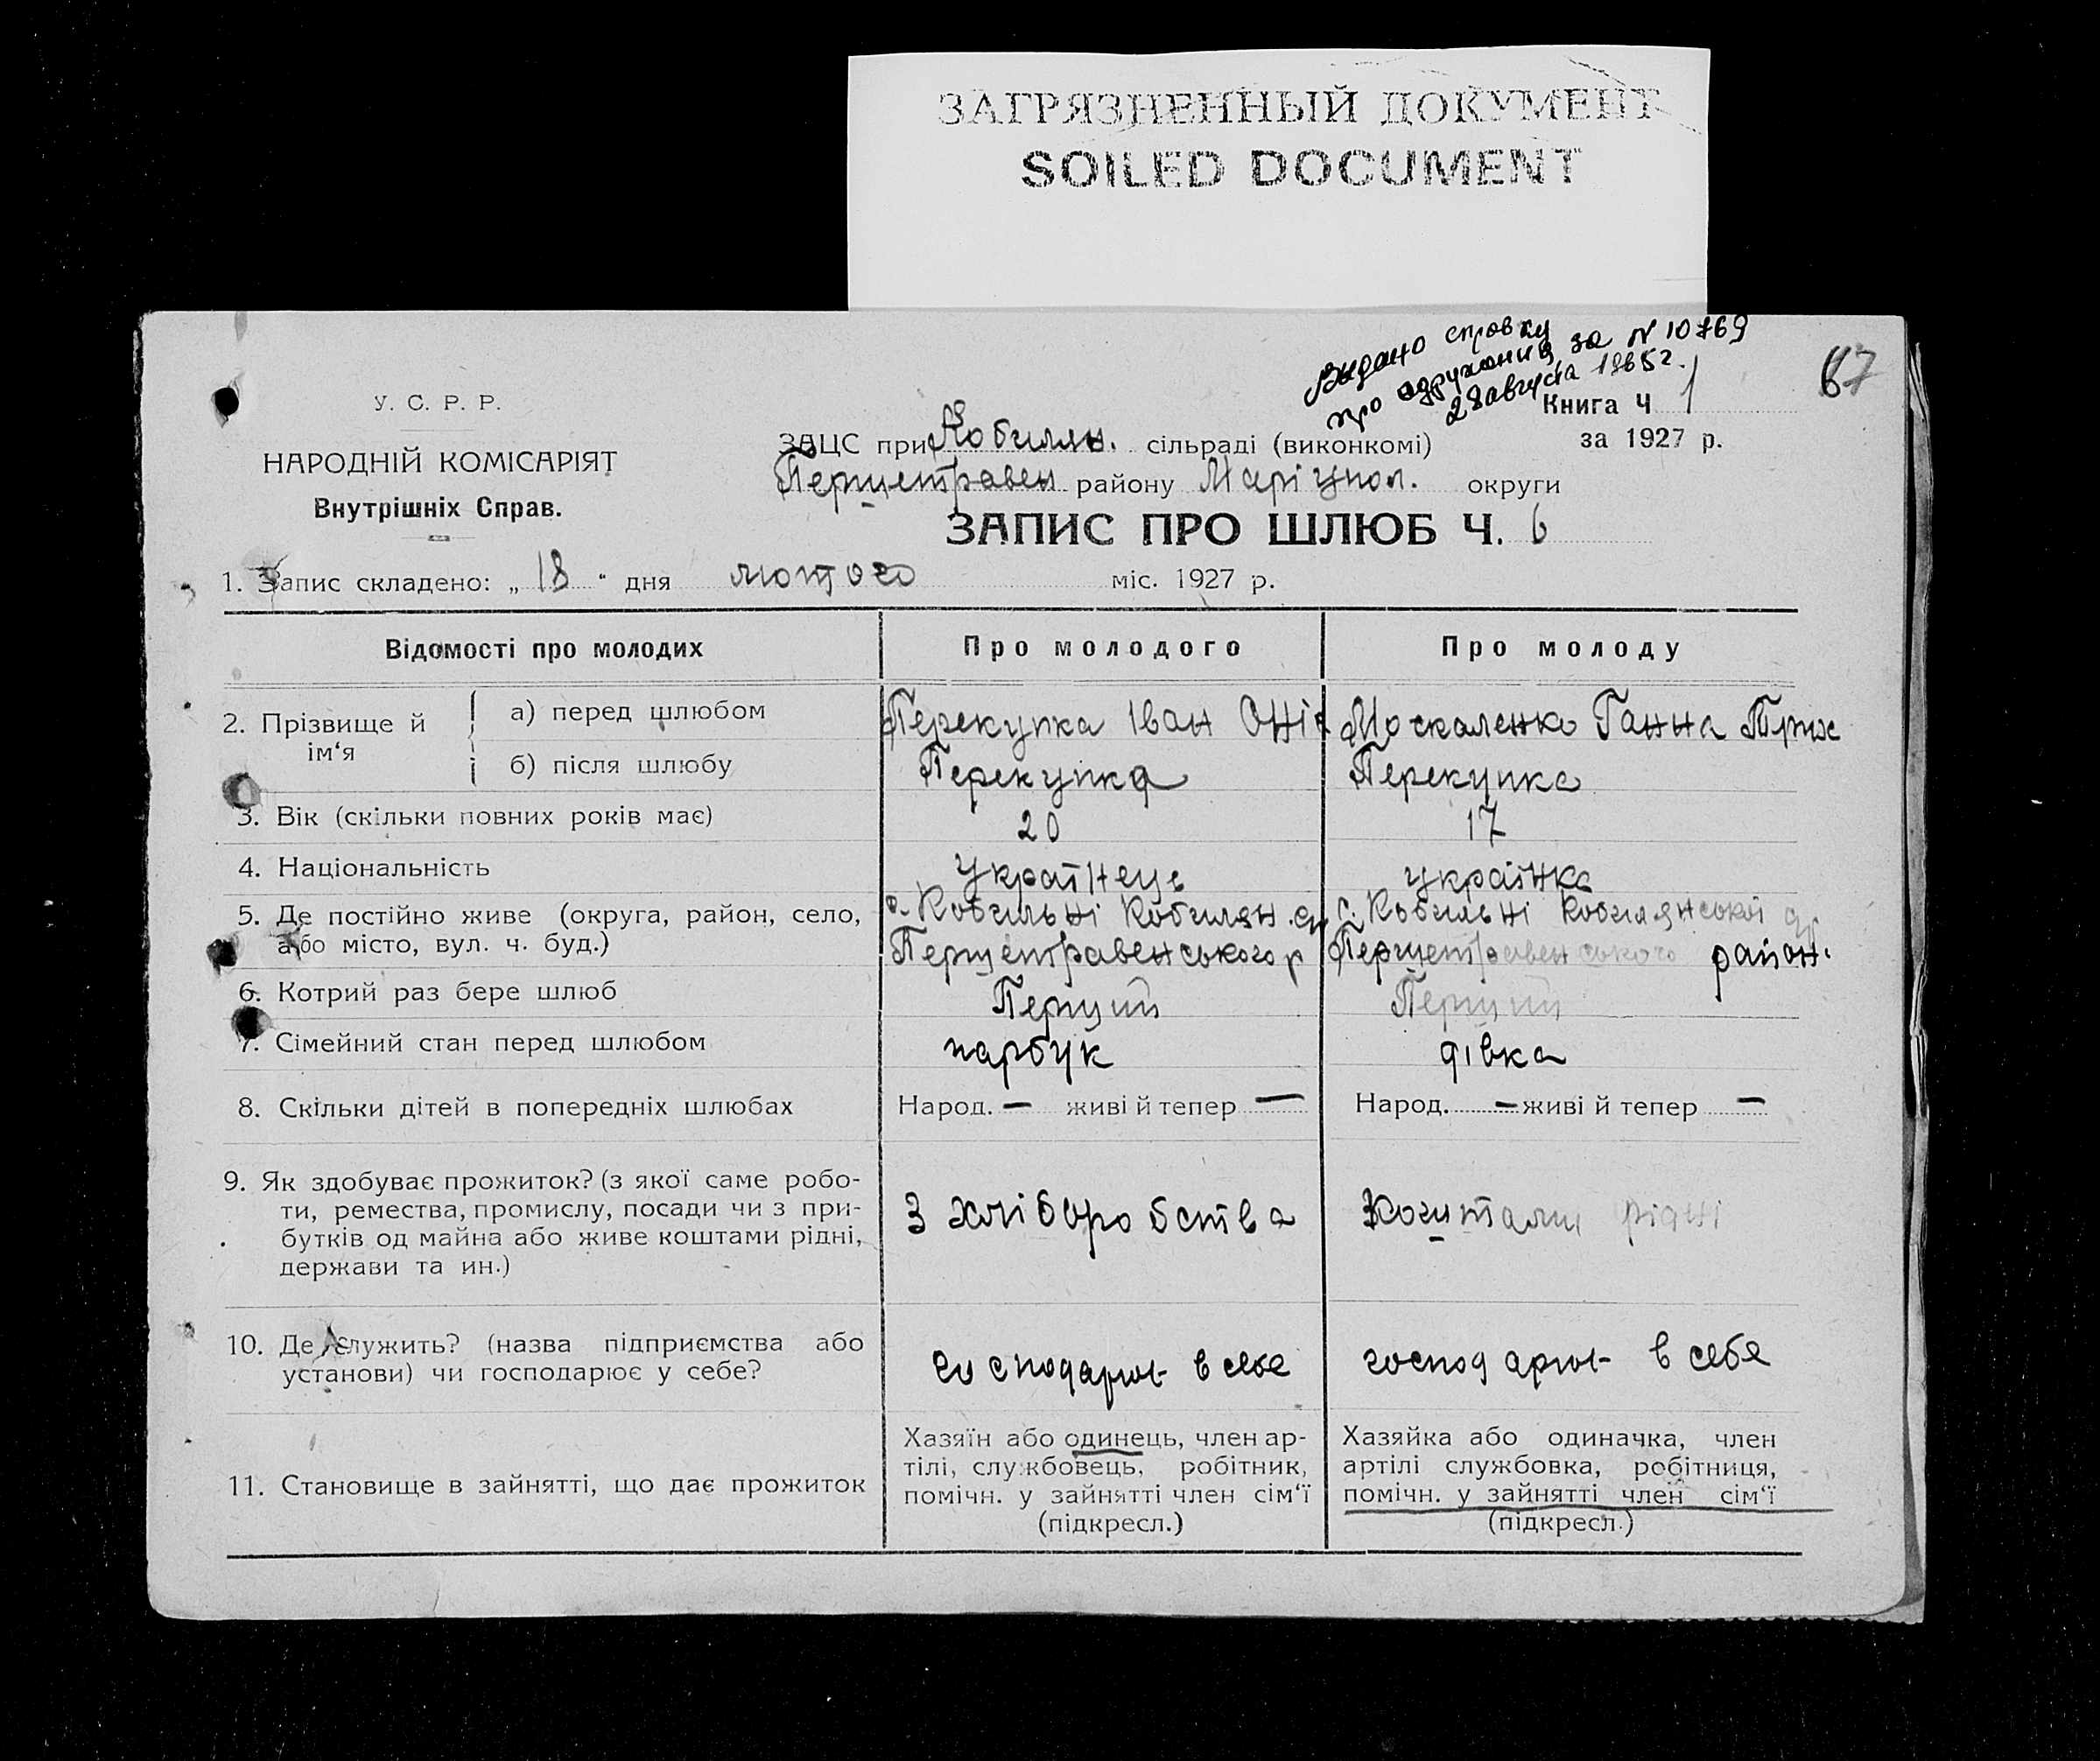 ЗАГРЯЗНЕННЫЙ ДОКУМЕНТ
SOILED DOCUMENT
Видано справку
про одружения за № 10769
28 августа 1965 г.
67
У. С. Р. Р.
НАРОДНІЙ КОМІСАРІЯТ
Внутрішніх Справ.
Книга Ч 1
за 1927 р.
ЗАЦС при Кобилян. сільраді (виконкомі)
Першетравен району Маріупол. округи
ЗАПИС ПРО ШЛЮБ Ч. 6
1. Запис складено: „ 18 " дня лютого міс. 1927 р.
Відомості про молодих Про молодого Про молоду
2. Прізвище й ім‘я
а) перед шлюбом Перекупка Іван Оніс Москаленко Ганна Трих
б) після шлюбу Перекупка Перекупка
3. Вік (скільки повних років має) 20 17
4. Національність українець українка
5. Де постійно живе (округа, район, село, с. Кобильні Кобилян. с. Кобильні Кобилянської
або місто, вул. ч. буд.) Першетравенського р Першетравенського район.
6. Котрий раз бере шлюб Перший Перший
7. Сімейний стан перед шлюбом парбук дівка
8. Скільки дітей в попередніх шлюбах Народ. — живі й тепер — Народ. — живі й тепер —
9. Як здобуває прожиток? (з якої саме робо-
ти, ремества, промислу, посади чи з при-
бутків од майна або живе коштами рідні,
держави та ин.)
З хліборобства Коштами рідні
10. Де служить? (назва підприємства або
установи) чи господарює у себе?
господарює в себе господарює в себе
11. Становище в зайнятті, що дає прожиток
Хазяїн або одинець, член ар-
тілі, службовець, робітник,
помічн. у зайнятті член сім‘ї
(підкресл.)
Хазяйка або одиначка, член
артілі службовка, робітниця,
помічн. у зайнятті член сім‘ї
(підкресл.)